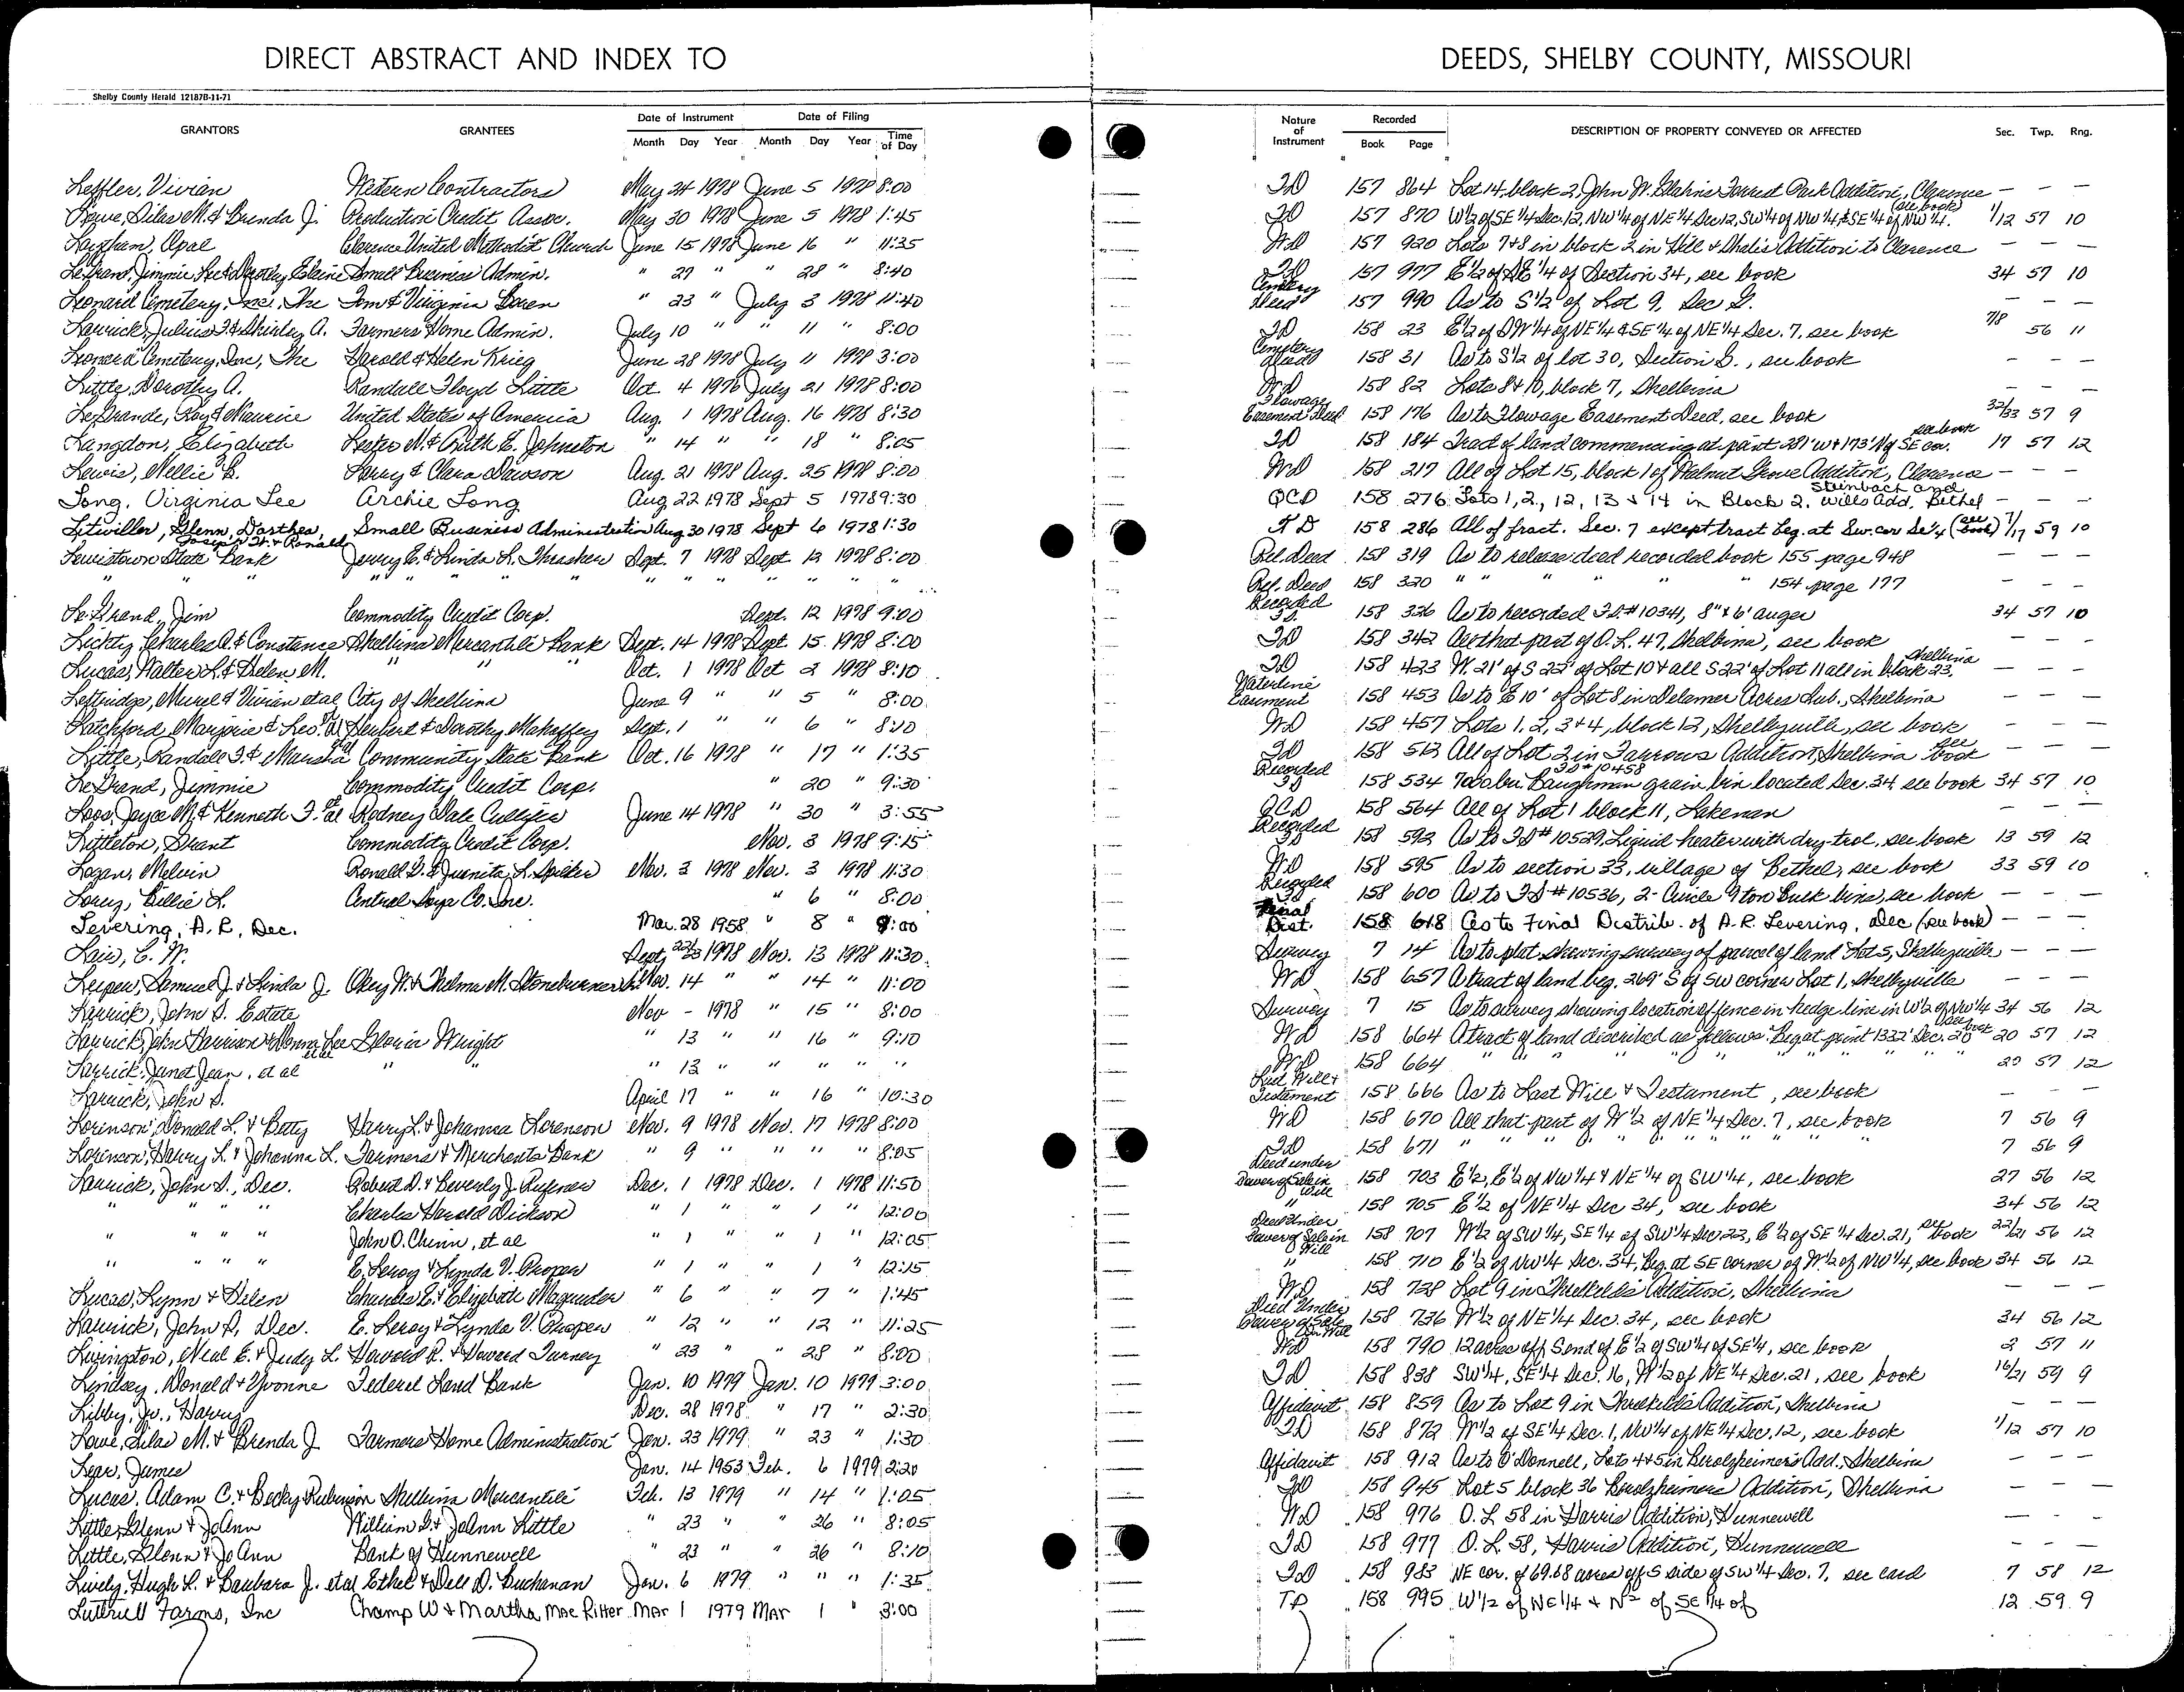 DIRECT ABSTRACT AND INDEX TO DEEDS, SHELBY COUNTY, MISSOURI
Shelby County Herald 12187B-11-71
GRANTORS GRANTEES Date of Instrument Month Day Year Date of Filing Month Day Year Time of Day Nature of Instrument Recorded Book Page DESCRIPTION OF PROPERTY CONVEYED OR AFFECTED Sec. Twp. Rng.
Leffler, Vivian Western Contractors May 24 1978 June 5 1978 8:00 TD 157 864 Lot 14, block 2, John W. Forrest Park Addition, Clarence — — —
Lowe, Silas M. & Brenda J. Production Credit Assoc. May 30 1978 June 5 1978 1:45 TD 157 870 W½ of SE ¼ Sec. 12, NW ¼ of NE ¼ Sec 12, SW ¼ of NW ¼ & SE ¼ of NW ¼. (see book) 1/12 57 10
Opal Clarence United Methodist Church June 15 1978 June 16 " 11:35 WD 157 920 Lots 7 & 8 in block 2 in Hill & Addition to Clarence — — —
LeGrand, Jimmie Lee & Dorothy Elaine Small Business Admin. " 27 " " 28 " 8:40 TD 157 977 E ½ of SE ¼ of Section 34, see book 34 57 10
Leonard Cemetery, Inc. The Tom & Virginia " 23 " July 3 1978 11:40 Cemetery Deed 157 990 As to S ½ of Lot 9, Sec G. — — —
Larrick, Julius F. & Shirley A. Farmers Home Admin. July 10 " " 11 " 8:00 TD 158 23 E ½ of SW ¼ of NE ¼ & SE ¼ of NE ¼ Sec. 7, see book 7/8 56 11
Leonard Cemetery, Inc, The Harold & Helen Krieg June 28 1978 July 11 1978 3:00 Cemetery Deed 158 31 As to S ½ of lot 30, Section G., see book — — —
Little, Dorothy A. Randall Floyd Little Oct. 4 1976 July 21 1978 8:00 WD 158 82 Lots 8 & 10, block 7, Shelbina — — —
LeGrande, Roy & Maurice United States of America Aug. 1 1978 Aug. 16 1978 8:30 Flowage Easement Deed 158 176 As to Flowage Easement Deed, see book 32/33 57 9
Langdon, Elizabeth Lester N. & Ruth E. Johnston " 14 " " 18 " 8:05 TD 158 184 Tract of land commencing at point 281' W & 173' N of SE cor. see book 17 57 12
Lewis, Nellie B. Harry & Clara Dawson Aug. 21 1978 Aug. 25 1978 8:00 WD 158 217 All of Lot 15, block 1 of Walnut Grove Addition, Clarence — — —
Long, Virginia Lee Archie Long Aug 22 1978 Sept 5 1978 9:30 QCD 158 276 Lots 1, 2, 12, 13 & 14 in Block 2. Steinbach and Wills Add, Bethel — — —
Litwiller, Glenn, Dorthea, Joseph H. & Ronald Small Business Administration Aug 30 1978 Sept 6 1978 1:30 TD 158 286 All of fract. Sec. 7 except tract beg. at Sw. cor Se ¼ (see book) 7/17 59 10
Lewistown State Bank Jerry E. & Linda L. Thrasher Sept. 7 1978 Sept 12 1978 8:00 Rel. Deed 158 319 As to release deed recorded book 155 page 948 — — —
" " " " " " " " " " " Rel. Deed 158 320 " " " " " 154 page 177 — — —
LeGrand, Jim Commodity Credit Corp. Sept. 12 1978 9:00 Recorded 158 326 As to recorded TD #10341, 8" x 6' auger 34 57 10
Charles A. & Constance Shelbina Mercantile Bank Sept. 14 1978 Sept. 15 1978 8:00 TD 158 342 All that part of O.L. 47, Shelbina, see book — — —
Lucas, Walter L. & Helen M. " " " Oct. 1 1978 Oct 2 1978 8:10 TD 158 423 W. 21' of S 22' of Lot 10 & all S 22' of Lot 11 all in block 23, Shelbina — — —
Leftridge, Murrel & Vivian etal City of Shelbina June 9 " " 5 " 8:00 Waterline Easement 158 453 As to E 10' of Lot 8 in Delamer Acres Sub., Shelbina — — —
Latchford, Marjorie & Leo. et al Herbert & Dorothy Mahaffey Sept. 1 " " 6 " 8:10 WD 158 457 Lots 1, 2, 3 & 4, block 12, Shelbyville, see book — — —
Little, Randall F. & Marsha Community State Bank Oct. 16 1978 " 17 " 1:35 TD 158 512 All of Lot 2 in Farrows Addition, Shelbina see book — — —
LeGrand, Jimmie Commodity Credit Corp. " 20 " 9:30 Recorded 158 534 7000 bu. Baughman grain bin located Sec. 34, see book #10458 34 57 10
Loos, Joyce M. & Kenneth F. et al Rodney Dale June 14 1978 " 30 " 3:55 QCD 158 564 All of Lot 1 block 11, Lakenan — — —
Littleton, Grant Commodity Credit Corp. Nov. 3 1978 9:15 Recorded 158 592 As to TD #10529 Liquid heater with dry-trol, see book 13 59 12
Logan, Melvin Ronald D. & Juanita L. Spilker Nov. 3 1978 Nov. 3 1978 11:30 WD 158 595 As to section 33, village of Bethel, see book 33 59 10
Billie L. Central Co. Inc. " 6 " 8:00 Recorded 158 600 As to TD #10536, 2 - Circle 9 ton Bulk bins, see book — — —
Levering, A. R, Dec. Mar. 28 1958 " 8 " 9:00 Final Dist. 158 618 As to Final Distrib. of A. R. Levering, Dec (see book) — — —
Lair, C. W. Sept. 22/23 1978 Nov. 13 1978 11:30 Survey 7 14 As to plat showing survey of parcel of land Lot 5, Shelbyville — — —
Leiper, Samuel J. & Linda J. Okey W. & Thelma M. Stoneburner Nov. 14 " " 14 " 11:00 WD 158 657 A tract of land beg. 269' S of SW corner Lot 1, Shelbyville — — —
Larrick, John S. Estate Nov - 1978 " 15 " 8:00 Survey 7 15 As to survey showing location of fence in hedge line in W ½ of NW ¼ 34 56 12
Larrick, John Harrison & Donna Lee et al Gloria Wright " 13 " " 16 " 9:10 WD 158 664 A tract of land discribed as follows: Beg at point 1332' Sec. 20 see book 20 57 12
Larrick, Janet Jean, et al " " " 13 " " " " " WD 158 664 " " " " " " " " 20 57 12
Larrick, John S. April 17 " " 16 " 10:30 Last Will & Testament 158 666 As to Last Will & Testament, see book — —
Lorinson, Donald L. & Betty Harry L. & Johanna Lorenson Nov. 9 1978 Nov. 17 1978 8:00 WD 158 670 All that part of W ½ of NE ¼ Sec. 7, see book 7 56 9
Lorinson, Harry L. & Johanna L. Farmers & Merchants Bank " 9 " " " " 8:05 TD 158 671 " " " " " " " " 7 56 9
Larrick, John S., Dec. Robert D. & Beverly J. Dec. 1 1978 Dec. 1 1978 11:50 Deed under Power of Sale in Will 158 703 E ½, E ½ of NW ¼ & NE ¼ of SW ¼, see book 27 56 12
" " " " Charles Harold Dickson " 1 " " 1 " 12:00 " 158 705 E ½ of NE ¼ Sec 34, see book 34 56 12
" " " " John O. Chinn, et al " 1 " " 1 " 12:05 Deed Under Power of Sale in Will 158 707 W ½ of SW ¼, SE ¼ of SW ¼ Sec 22, E ½ of SE ¼ Sec. 21, see book 22/21 56 12
" " " " E. Leroy & Lynda V. Proper " 1 " " 1 " 12:15 " 158 710 E ½ of NW ¼ Sec. 34, Beg. at SE corner of W ½ of NW ¼, see book 34 56 12
Lucas, Lynn & Helen Charles E. & Elizabeth Magruder " 6 " " 7 " 1:45 WD 158 728 Lot 9 in Threlkelds Addition, Shelbina — —
Larrick, John S, Dec. E. Leroy & Lynda V. Proper " 12 " " 12 " 11:25 Deed Under Power of Sale in Will 158 736 W ½ of NE ¼ Sec. 34, see book 34 56 12
Livingston, Neal E. & Judy L. Howard R. & Howard Turney " 23 " " 28 " 8:00 WD 158 790 12 acres off S end of E ½ of SW ¼ of SE ¼, see book 2 57 11
Lindsey, Donald & Yvonne Federal Land Bank Jan. 10 1979 Jan. 10 1979 3:00 TD 158 838 SW ¼, SE ¼ Sec. 16, W ½ of NE ¼ Sec. 21, see book 16/21 59 9
Libby, Jr., Harry Dec. 28 1978 " 17 " 2:30 Affidavit 158 859 As to Lot 9 in Threlkelds Addition, Shelbina — — —
Lowe, Silas M. & Brenda J. Farmers Home Administration Jan. 23 1979 " 23 " 1:30 TD 158 872 W ½ of SE ¼ Sec. 1, NW ¼ of NE ¼ Sec. 12, see book 1/12 57 10
Lear, James Jan. 14 1953 Feb. 6 1979 2:20 Affidavit 158 912 As to O'Donnell, Lots 4 & 5 in Berolzheimer's Add., Shelbina — — —
Lucas, Adam C. & Becky Robinson Shelbina Mercantile Feb. 13 1979 " 14 " 1:05 TD 158 945 Lot 5 block 36 Berolzheimers Addition, Shelbina — — —
Little, Glenn & JoAnn William G. & JoAnn Little " 23 " " 26 " 8:05 WD 158 976 O. L. 58 in Harris Addition, Hunnewell — — —
Little, Glenn & JoAnn Bank of Hunnewell " 23 " " 26 " 8:10 TD 158 977 O. L. 58, Harris Addition, Hunnewell — — —
Lively, Hugh L. & Barbara J. etal Ethel & Dell D. Buchanan Jan. 6 1979 " " " 1:35 TD 158 983 NE cor. of 69.68 acres off S side of SW ¼ Sec. 7, see card 7 58 12
Luttrull Farms, Inc Champ W & Martha Mae Ritter Mar 1 1979 Mar 1 " 3:00 TD 158 995 W ½ of NE ¼ & N² of SE ¼ of 12 59 9